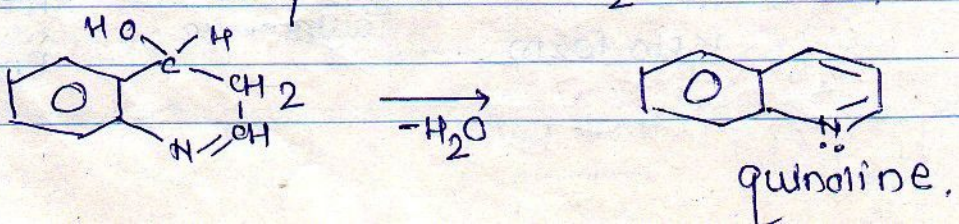 HO H
C
CH2
CH
N
-H2O
N
quinoline.